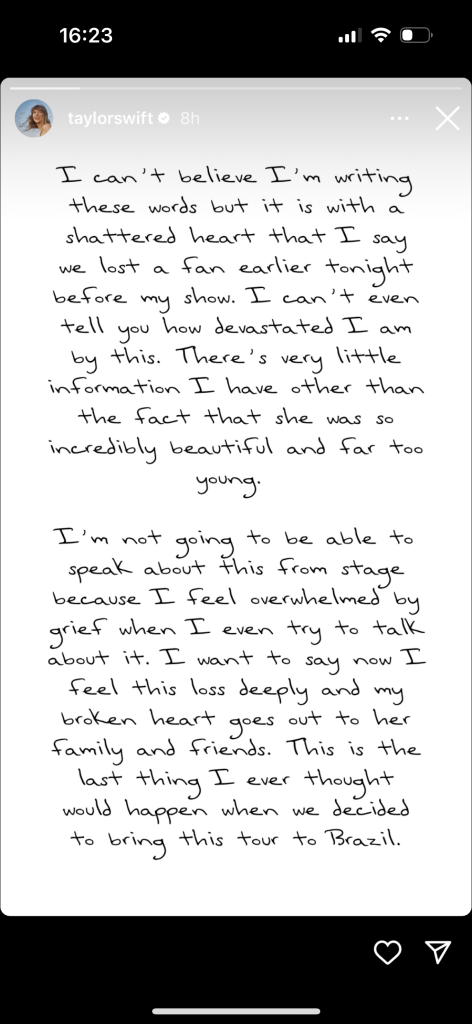 16:23
taylorswift 8h
I can't believe I'm writing
these words but it is with a
shattered heart that I say
we lost a fan earlier tonight
before my show. I can't even
tell you how devastated I am
by this. There's very little
information I have other than
the fact that she was so
incredibly beautiful and far too
young.
I'm not going to be able to
speak about this from stage
because I feel overwhelmed by
grief when I even try to talk
about it. I want to say now I
feel this loss deeply and my
broken heart goes out to her
family and friends. This is the
last thing I ever thought
would happen when we decided
to bring this tour to Brazil.